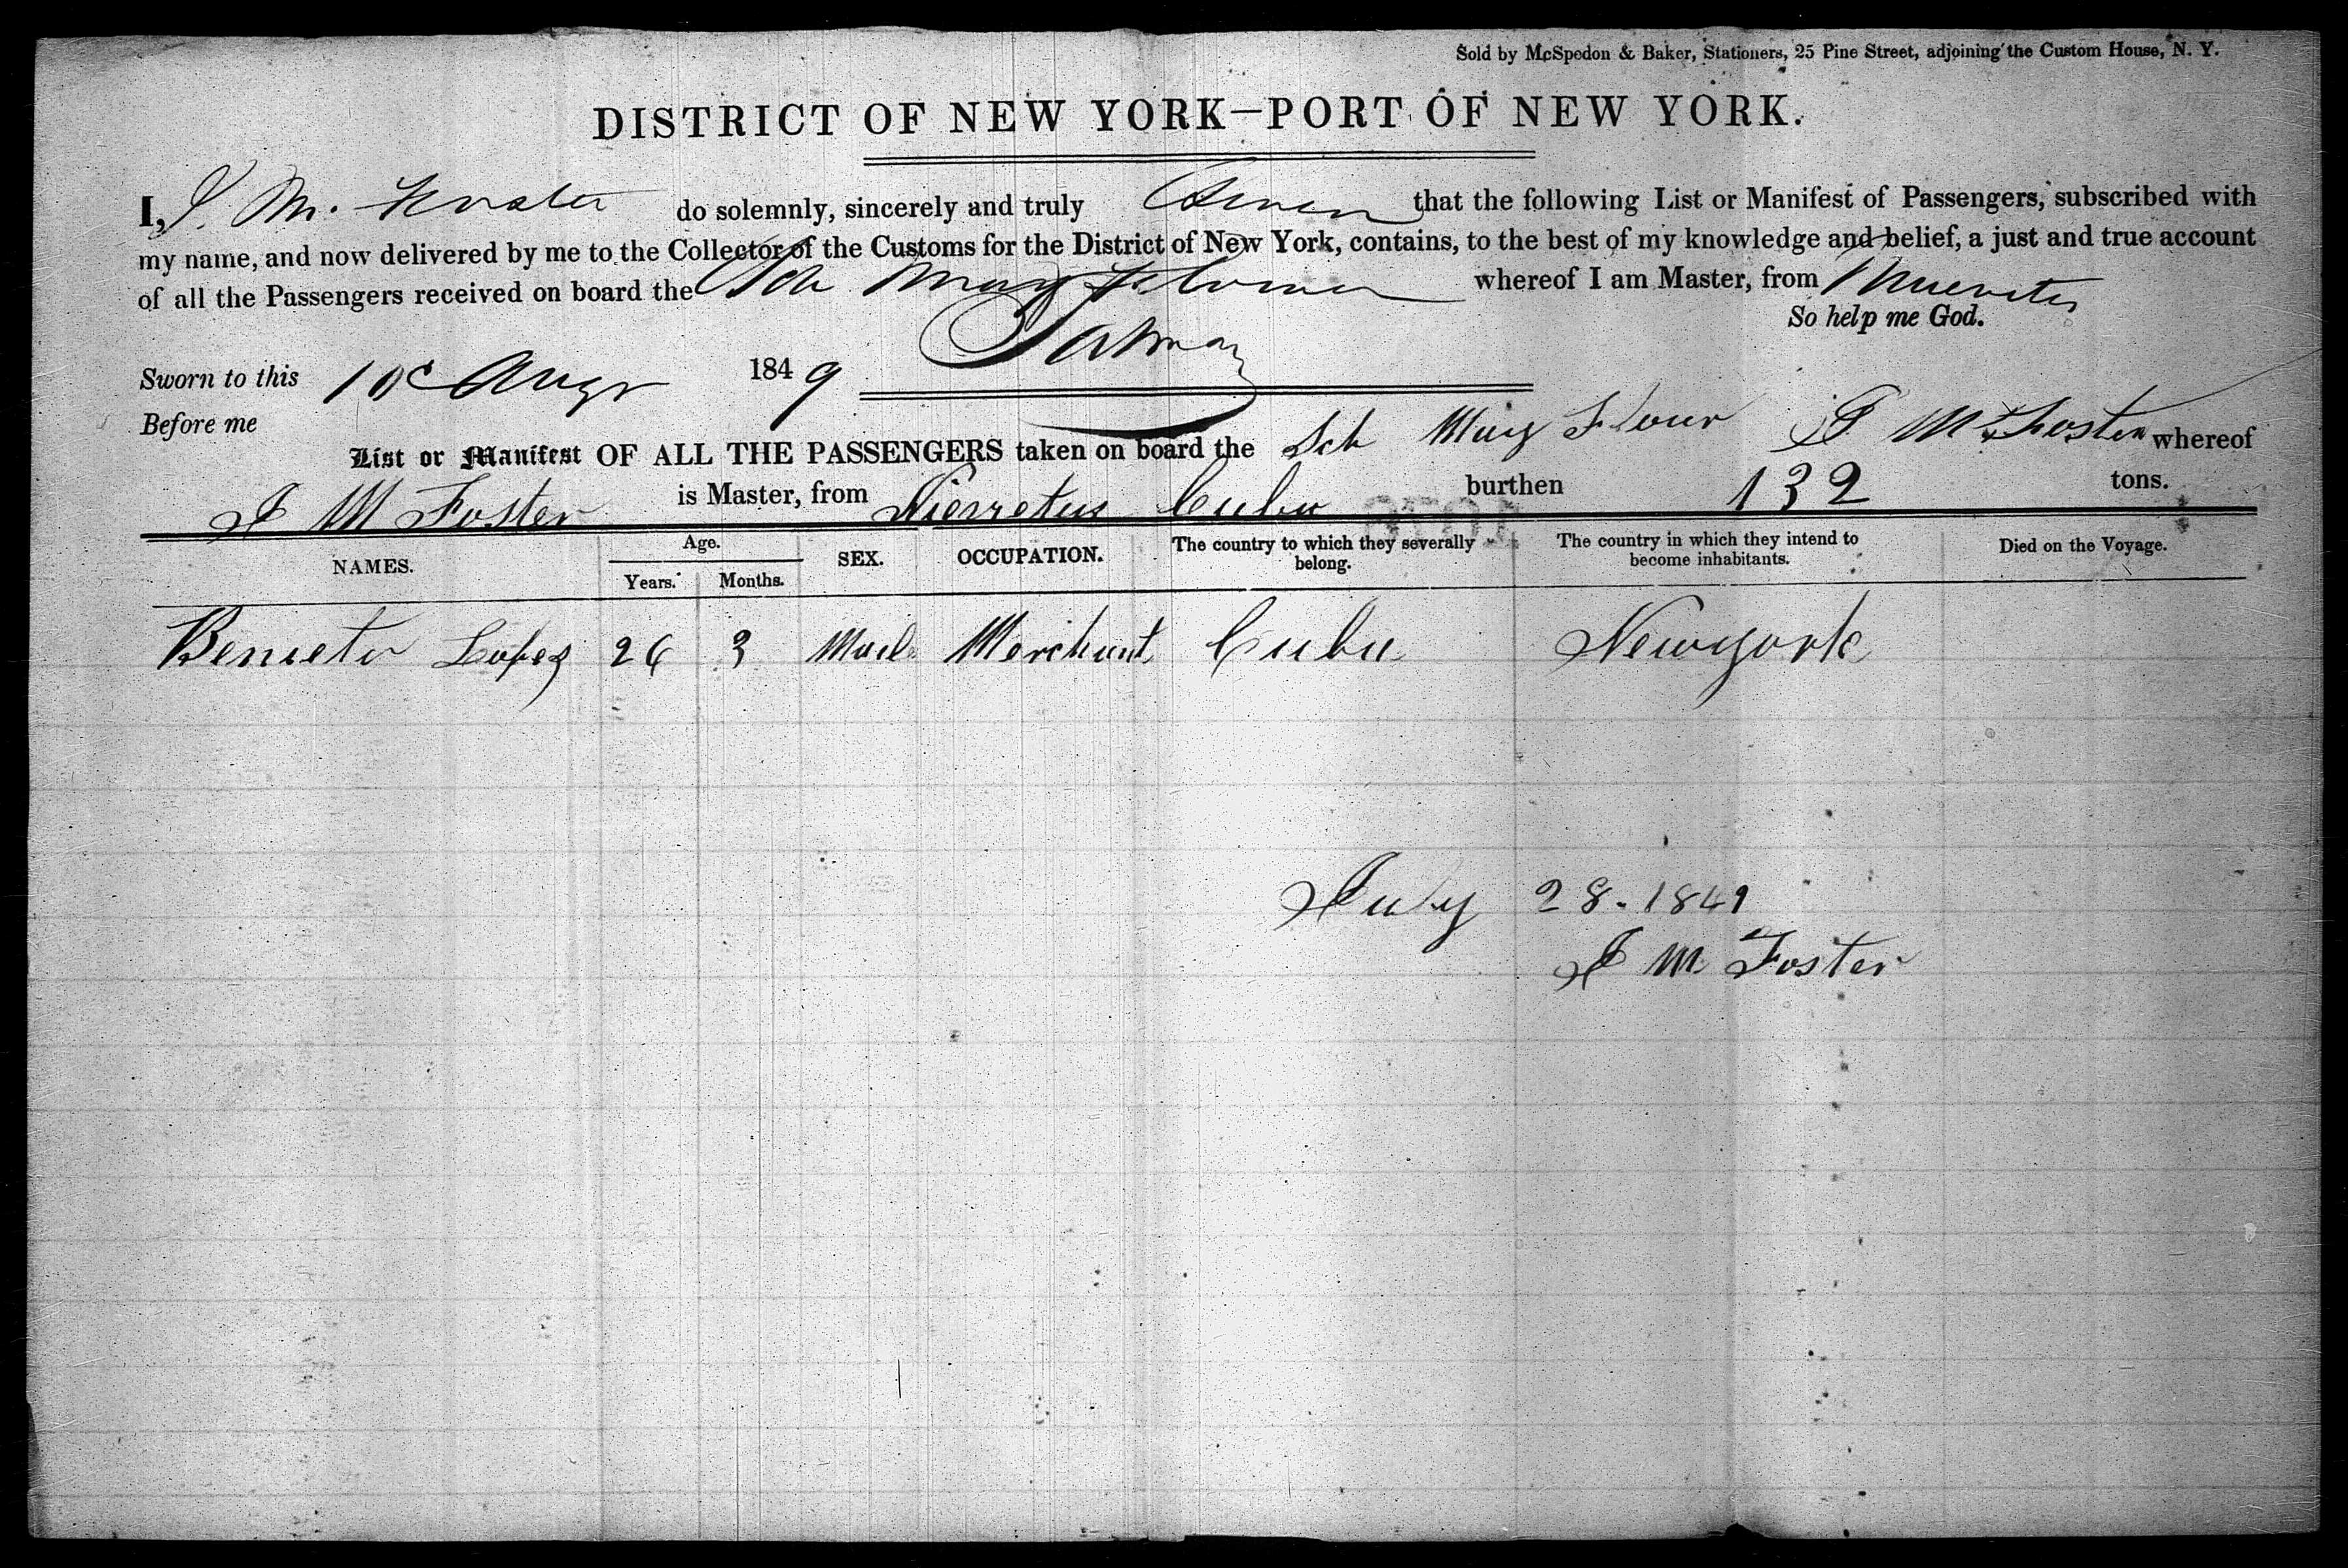 Sold by McSpedon & Baker, Stationers, 25 Pine Street, adjoining the Custom House, N. Y.
DISTRICT OF NEW YORK—PORT OF NEW YORK.
I, J. M. Foster do solemnly, sincerely and truly Swear that the following List or Manifest of Passengers, subscribed with
my name, and now delivered by me to the Collector of the Customs for the District of New York, contains, to the best of my knowledge and belief, a just and true account
of all the Passengers received on board the Sch May Flower whereof I am Master, from
So help me God.
Sworn to this 10 Augt 1849
Before me
List or Manifest OF ALL THE PASSENGERS taken on board the Sch May Flour J M Foster whereof
J M Foster is Master, from Cuba burthen 132 tons.
NAMES. Age. Years. Months. SEX. OCCUPATION. The country to which they severally belong. The country in which they intend to become inhabitants. Died on the Voyage.
Benieto Lopez 26 3 Mail Merchant Cuba Newyork
July 28. 1849
J M Foster